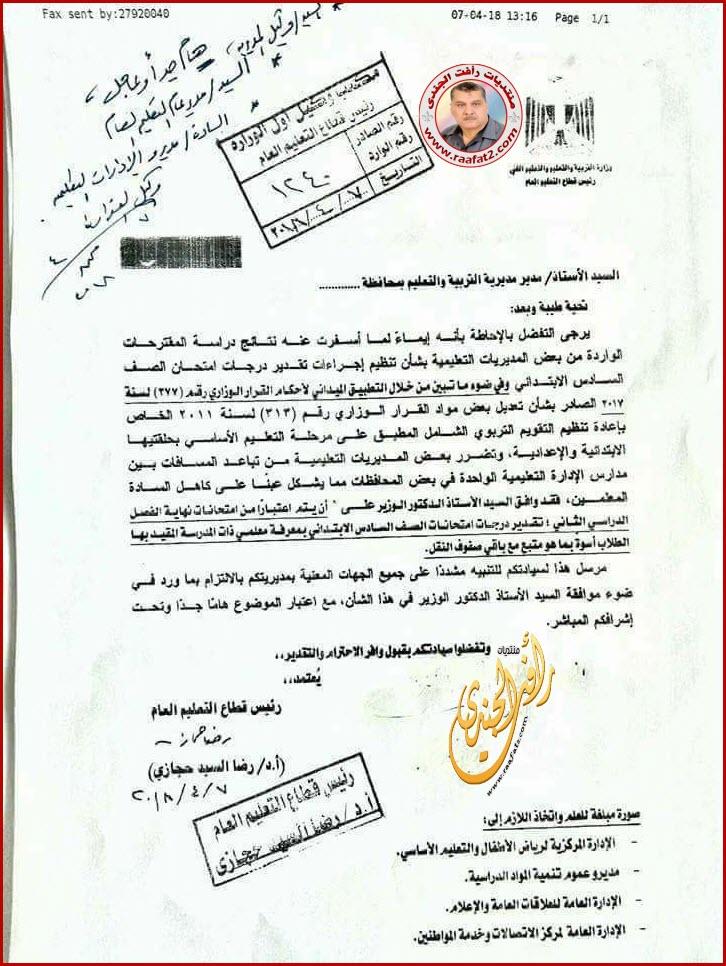 Fax sent by:27920040 07-04-18 13:16 Page 1/1
هام جداً وعاجل
السيد/ مدير عام التعليم العام
السادة/ مديرو الإدارات التعليمية
مكتب وكيل أول الوزارة
رئيس قطاع التعليم العام
رقم الصادر
رقم الوارد
١٢٤٠
التاريخ
منتديات رأفت الجندى
www.raafat2.com
وزارة التربية والتعليم والتعليم الفني
رئيس قطاع التعليم العام
السيد الأستاذ/ مدير مديرية التربية والتعليم بمحافظة ............
تحية طيبة وبعد:
يرجى التفضل بالإحاطة بأنه إيماءً لما أسفرت عنه نتائج دراسة المقترحات
الواردة من بعض المديريات التعليمية بشأن تنظيم إجراءات تقدير درجات امتحان الصف
السادس الابتدائي وفي ضوء ما تبين من خلال التطبيق الميداني لأحكام القرار الوزاري رقم (٣٧٧) لسنة
٢٠١٧ الصادر بشأن تعديل بعض مواد القرار الوزاري رقم (٣١٣) لسنة ٢٠١١ الخاص
بإعادة تنظيم التقويم التربوي الشامل المطبق على مرحلة التعليم الأساسي بحلقتيها
الابتدائية والإعدادية، وتضرر بعض المديريات التعليمية من تباعد المسافات بين
مدارس الإدارة التعليمية الواحدة في بعض المحافظات مما يشكل عبئا على كاهل السادة
المعلمين، فقد وافق السيد الأستاذ الدكتور الوزير على " أن يتم اعتبارًا من امتحانات نهاية الفصل
الدراسي الثاني ؛ تقدير درجات امتحانات الصف السادس الابتدائي بمعرفة معلمي ذات المدرسة المقيد بها
الطلاب أسوة بما هو متبع مع باقي صفوف النقل.
مرسل هذا لسيادتكم للتنبيه مشددًا على جميع الجهات المعنية بمديريتكم بالالتزام بما ورد في
ضوء موافقة السيد الأستاذ الدكتور الوزير في هذا الشأن، مع اعتبار الموضوع هامًا جدًا وتحت
إشرافكم المباشر.
وتفضلوا سيادتكم بقبول وافر الاحترام والتقدير،،
يُعتمد،،
منتديات
رأفت الجندى
www.raafat2.com
رئيس قطاع التعليم العام
(أ.د/ رضا السيد حجازي)
٢٠١٨/٤/٧
رئيس قطاع التعليم العام
أ.د/ رضا السيد حجازي
صورة مبلغة للعلم واتخاذ اللازم إلى:
- الإدارة المركزية لرياض الأطفال والتعليم الأساسي.
- مديرو عموم تنمية المواد الدراسية.
- الإدارة العامة للعلاقات العامة والإعلام.
- الإدارة العامة لمركز الاتصالات وخدمة المواطنين.